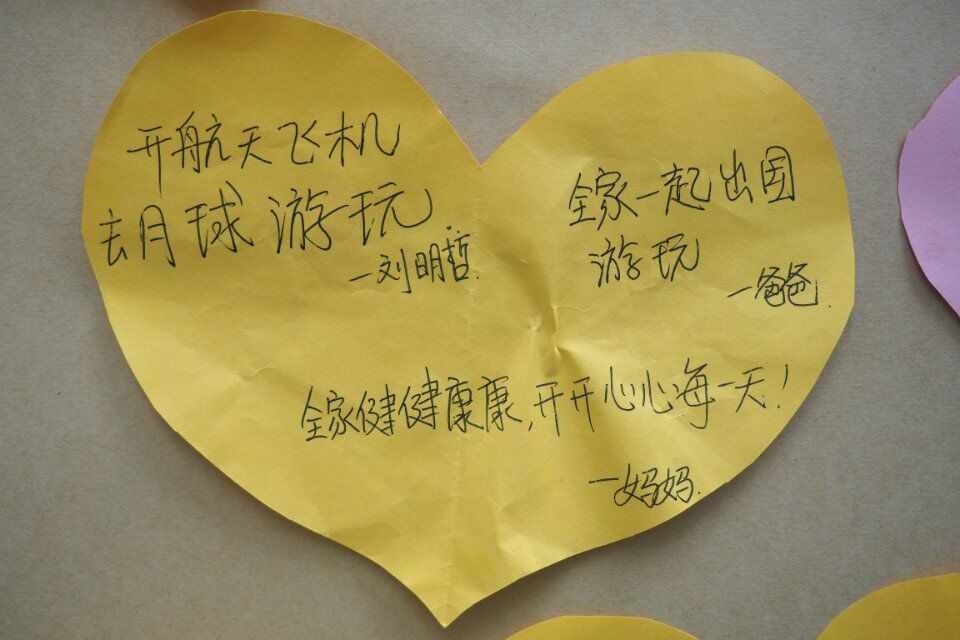 开航天飞机
去月球游玩
—刘明哲.
全家一起出国
游玩
—爸爸.
全家健健康康,开开心心每一天!
—妈妈.